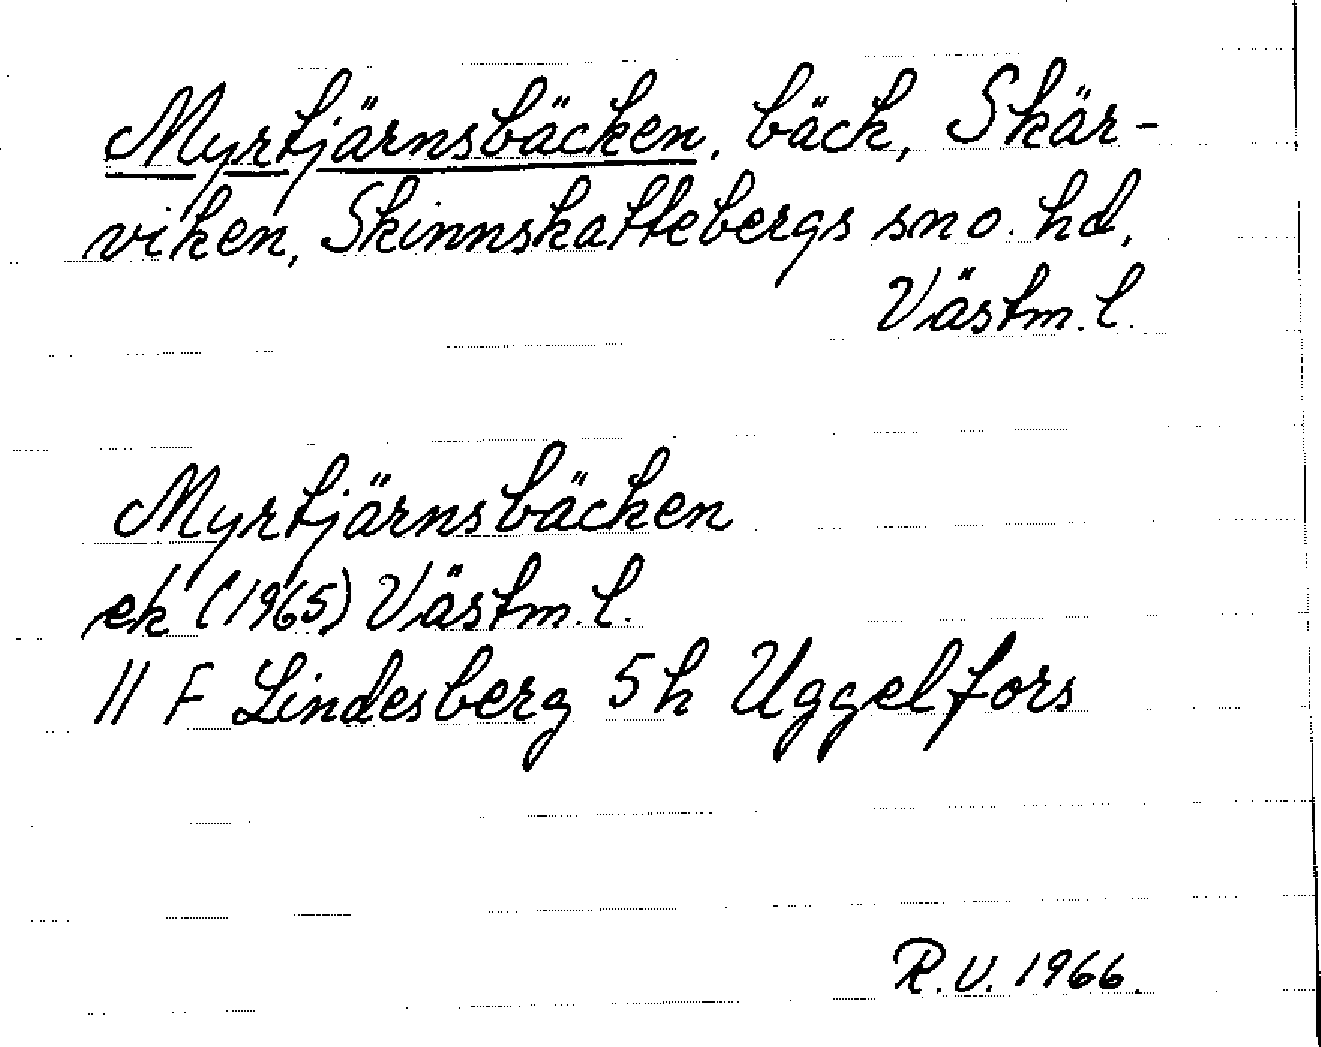 Myrtjärnsbäcken, bäck, Skär-
viken, Skinnskattebergs sn o. hd,
Västm. l.
Myrtjärnsbäcken
ek (1965) Västm. l.
11 F Lindesberg 5h Uggelfors
R.V. 1966.